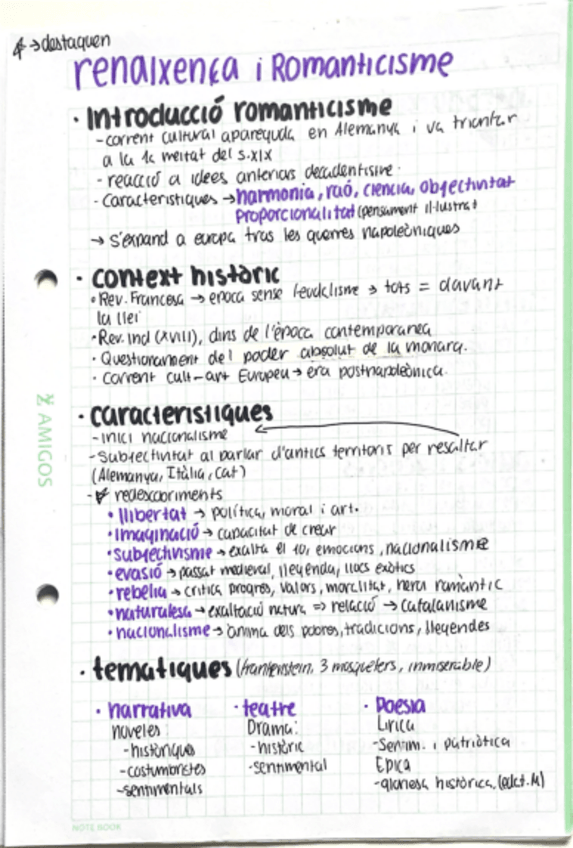 → destaquen
renaixença i Romanticisme
· Introducció romanticisme
- corrent cultural apareguda en Alemanya i va triomfar
a la 1a meitat del s.XIX
- reacció a idees anteriors decadentisme.
- característiques → harmonia, raó, ciencia, objectivitat
proporcionalitat (pensament il·lustrat
→ s'expand a europa tras les guerres napoleòniques
· context històric
• Rev. Francesa → epoca sense feudalisme → tots = davant
la llei
• Rev. Ind (XVIII), dins de l'època contemporanea
• Questionament del poder absolut de la monarq.
• corrent cult-art Europeu → era postnapoleònica.
· característiques
- inici nacionalisme
- subjectivitat al parlar d'antics territoris per resaltar
(Alemanya, Itàlia, Cat)
- redescobriments
• llibertat → política, moral i art.
• imaginació → capacitat de crear
• subjectivisme → exalta el jo, emocions, nacionalisme
• evasió → passat medieval, lleyenda, llocs exòtics
• rebelia → critica progres, valors, moralitat, heroi romàntic
• naturalesa → exaltació natura => relació → catalanisme
• nacionalisme → ànima dels pobres, tradicions, llegendes
· tematiques (frankenstein, 3 mosqueters, inmiserable)
• narrativa • teatre • Poesia
noveles: Drama: Lírica
- històriques - històric - Sentim. i patriòtica
- costumbristes - sentimental Èpica
- sentimentals - històrica, (edat.M)
AMIGOS
NOTE BOOK